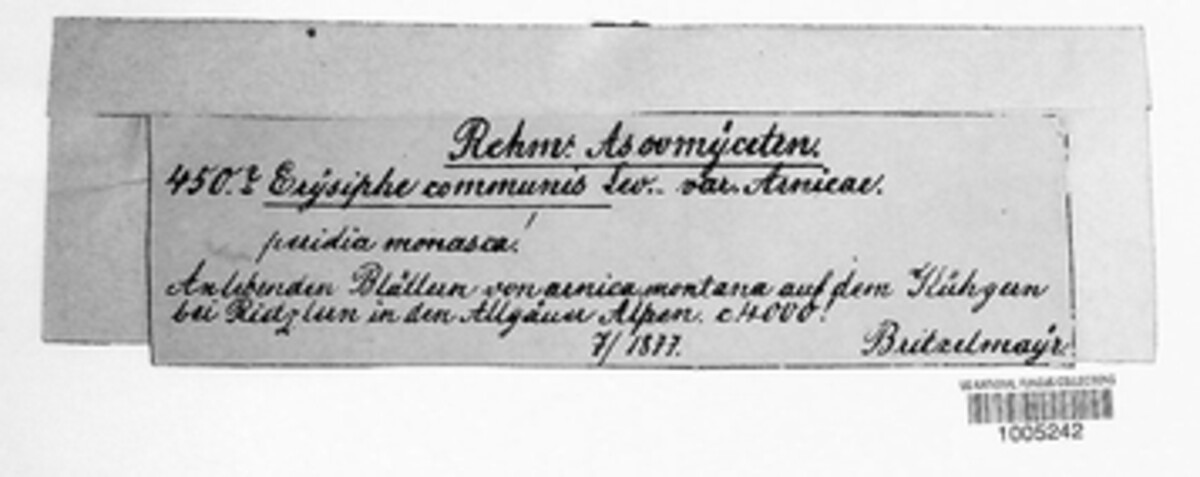 Rehm: Ascomÿceten.
450. b Erÿsiphe communis Lev.. var. Arnicae.
peridia monasca!
An lebenden Blättern von arnica montana auf dem Kühgern
bei Riezlern in den Allgäuer Alpen. c. 4000!
7/ 1877. Britzelmaÿr.
US NATIONAL FUNGUS COLLECTIONS
1005242